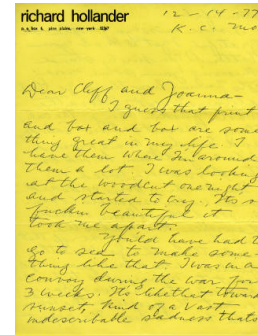 richard hollander
r. r. box 4, pine plains, new york
12-14-77
K. C. Mo
Dear Cliff and Joanna—
I guess that print
and box and box are some
thing great in my life. I
have them where I'm around
them a lot I was looking
at the woodcut one night
and started to cry. Its so
fuckin beautiful it
took me apart.
Yould have had to
go to sea to make some
thing like that I was in a
convoy during the war for
3 weeks. It's like that toward
sunset, kind of a vast
indescribable sadness thats